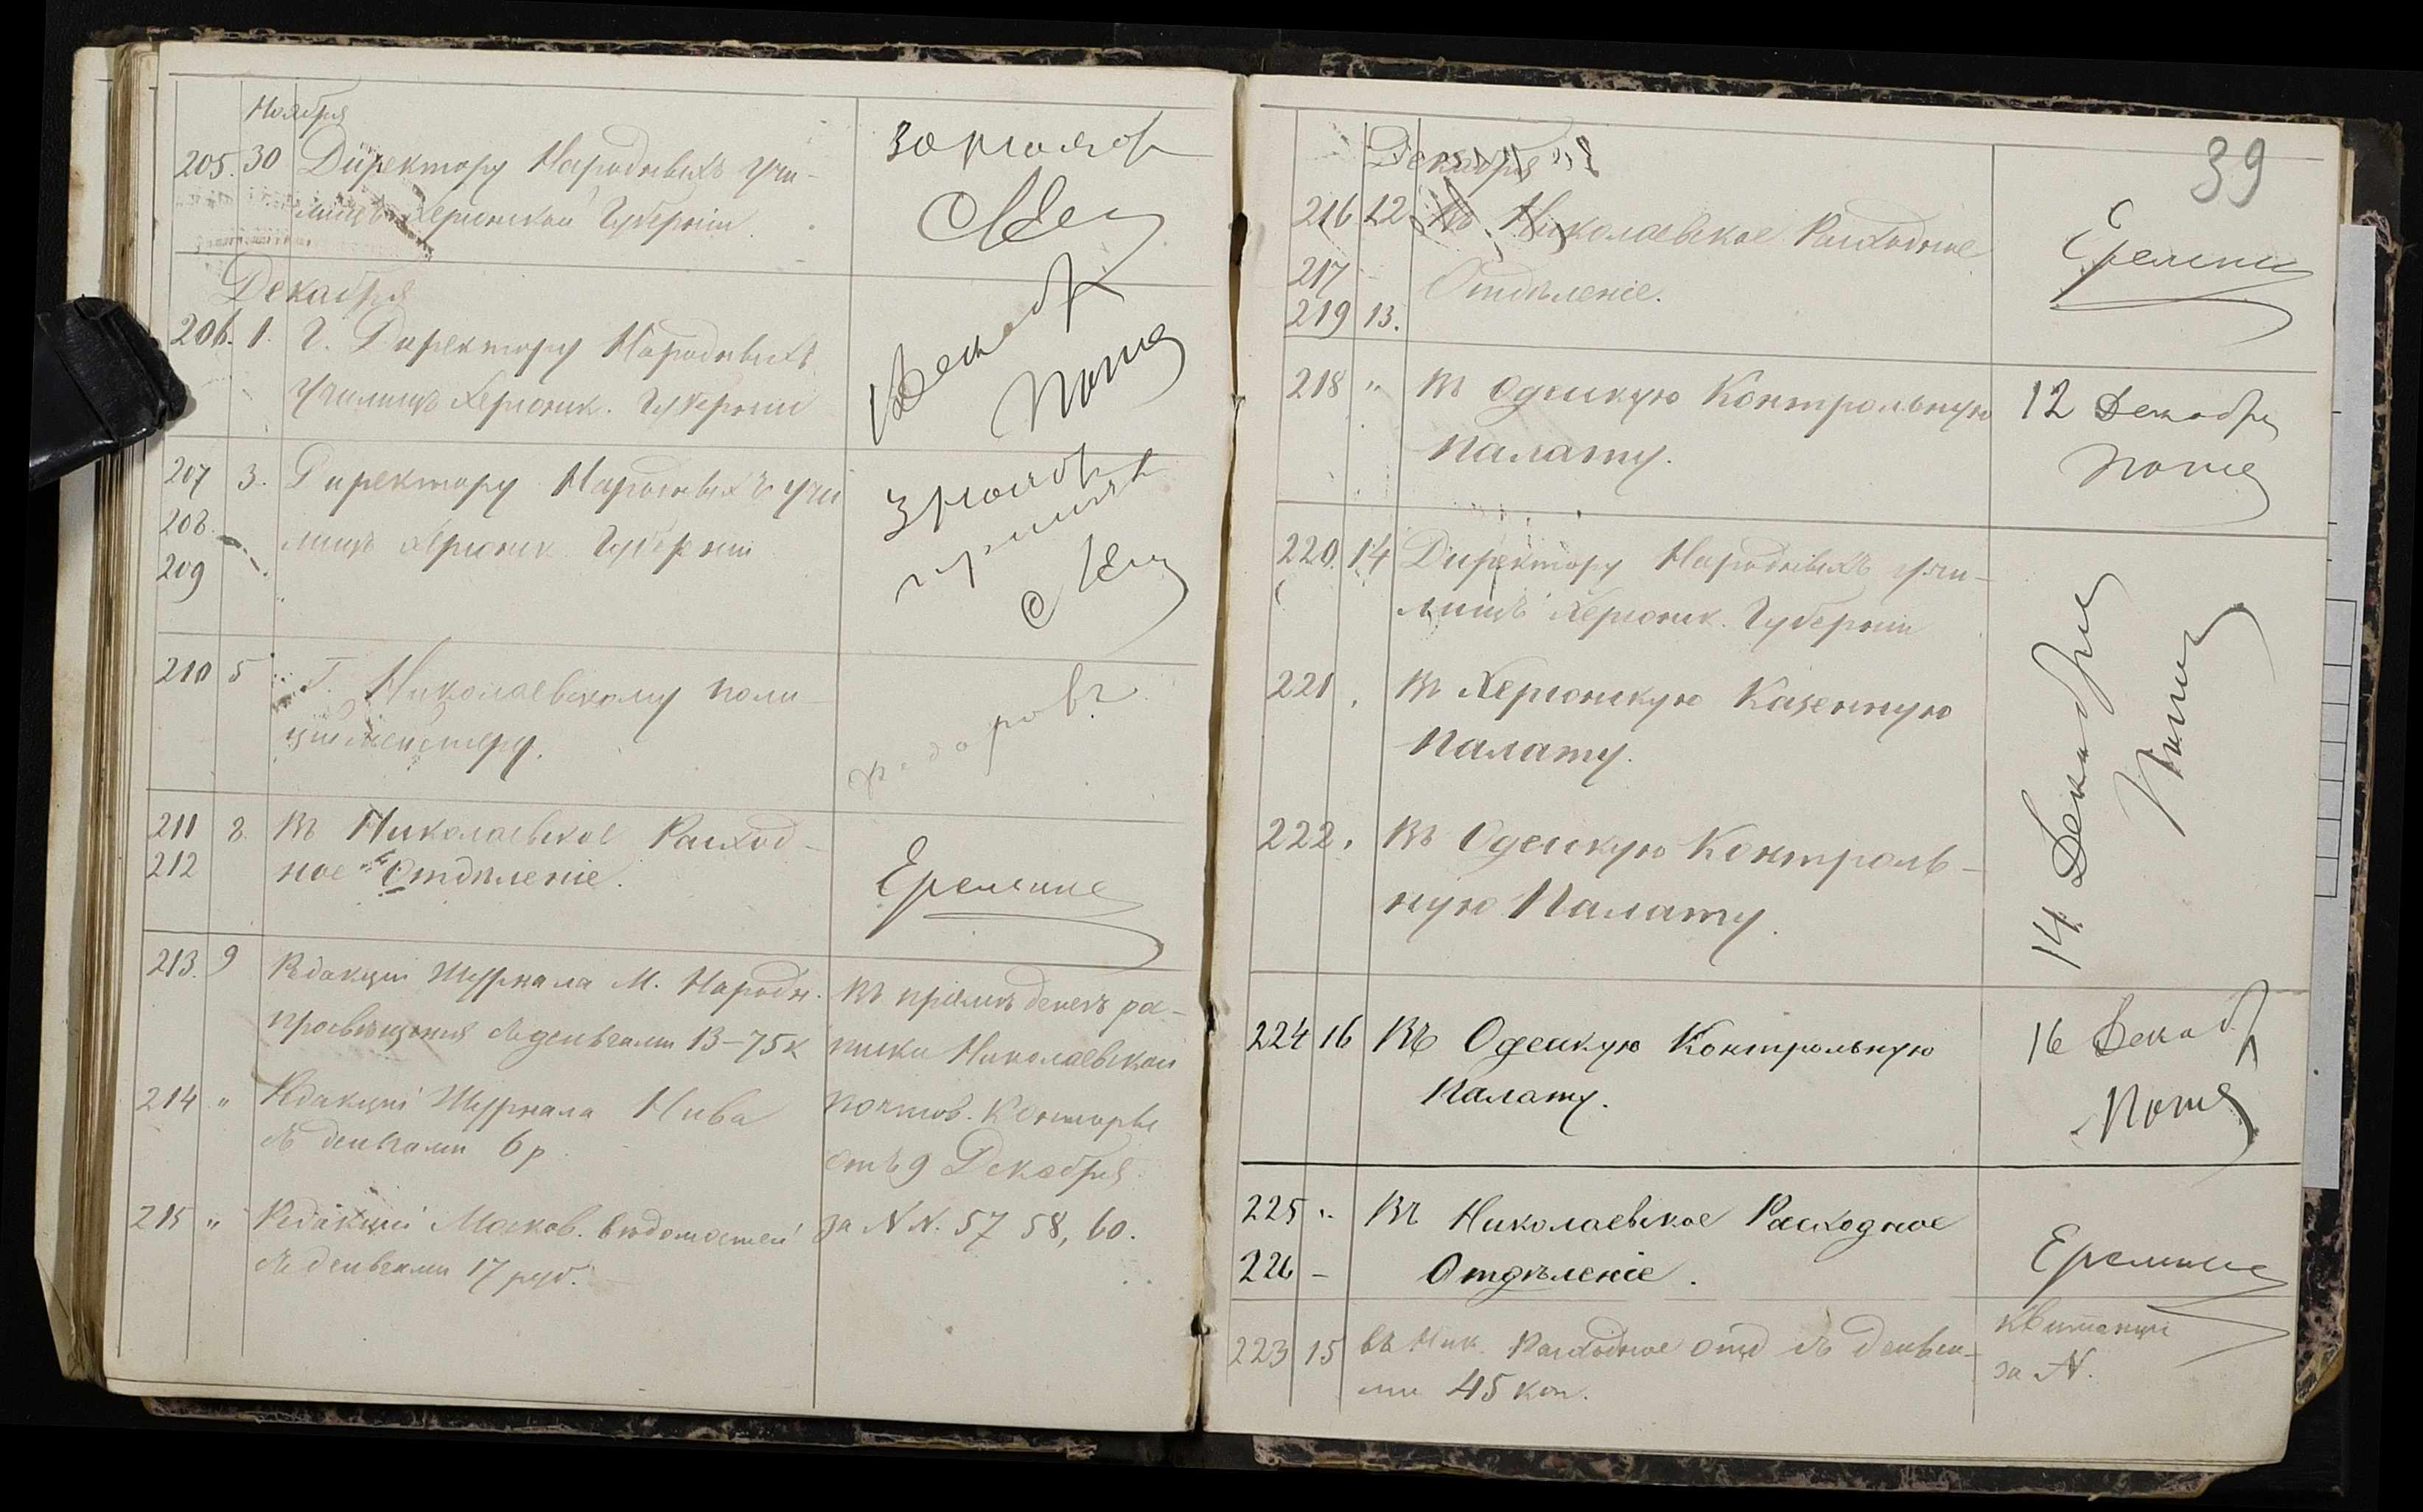 Ноября
205. 30 Директору Народныхъ Учи-
лищъ Херсонской Губерніи.
30 ноября
Декабря
206. 1. Г. Директору Народныхъ
Училищъ Херсонск. Губерніи
1 Декабр
207 3. Директору Народныхъ Учи
208. лищъ Херсонск. Губерніи
209
3
210 5 Г. Николаевскому Поли-
цiймейстеру.
211 8. Въ Николаевское Расход-
212 ное Отдѣленіе.
Еремин
213. 9 Редакціи Журнала М. Народн.
просвѣщенія съ деньгами 13-75к
214 " Редакціи Журнала Нива
съ деньгами 6 р.
215 " Редакціи Москов. Вѣдомостей
съ деньгами 17 руб.
Въ пріемѣ денегъ ра-
писки Николаевской
почтов. Конторы
отъ 9 Декабря
за NN. 57 58, 60.
39
Декабря
216 12 Въ Николаевское Расходное
217 Отдѣленіе.
219 13.
Еремин
218 " Въ Одесскую Контрольную
Палату.
12 Декабря
220. 14 Директору Народныхъ Учи-
лищъ Херсонск. Губерніи
221 Въ Херсонскую Казенную
Палату.
222. Въ Одесскую Контроль-
ную Палату.
14 Декабря
224 16 Въ Одесскую Контрольную
Палату.
16 Декаб
225 " Въ Николаевское Расходное
226 - Отдѣленіе.
Еремин
223 15 Въ Ник. Расходное Отд съ деньга-
ми 45 коп.
квитанція
за N.